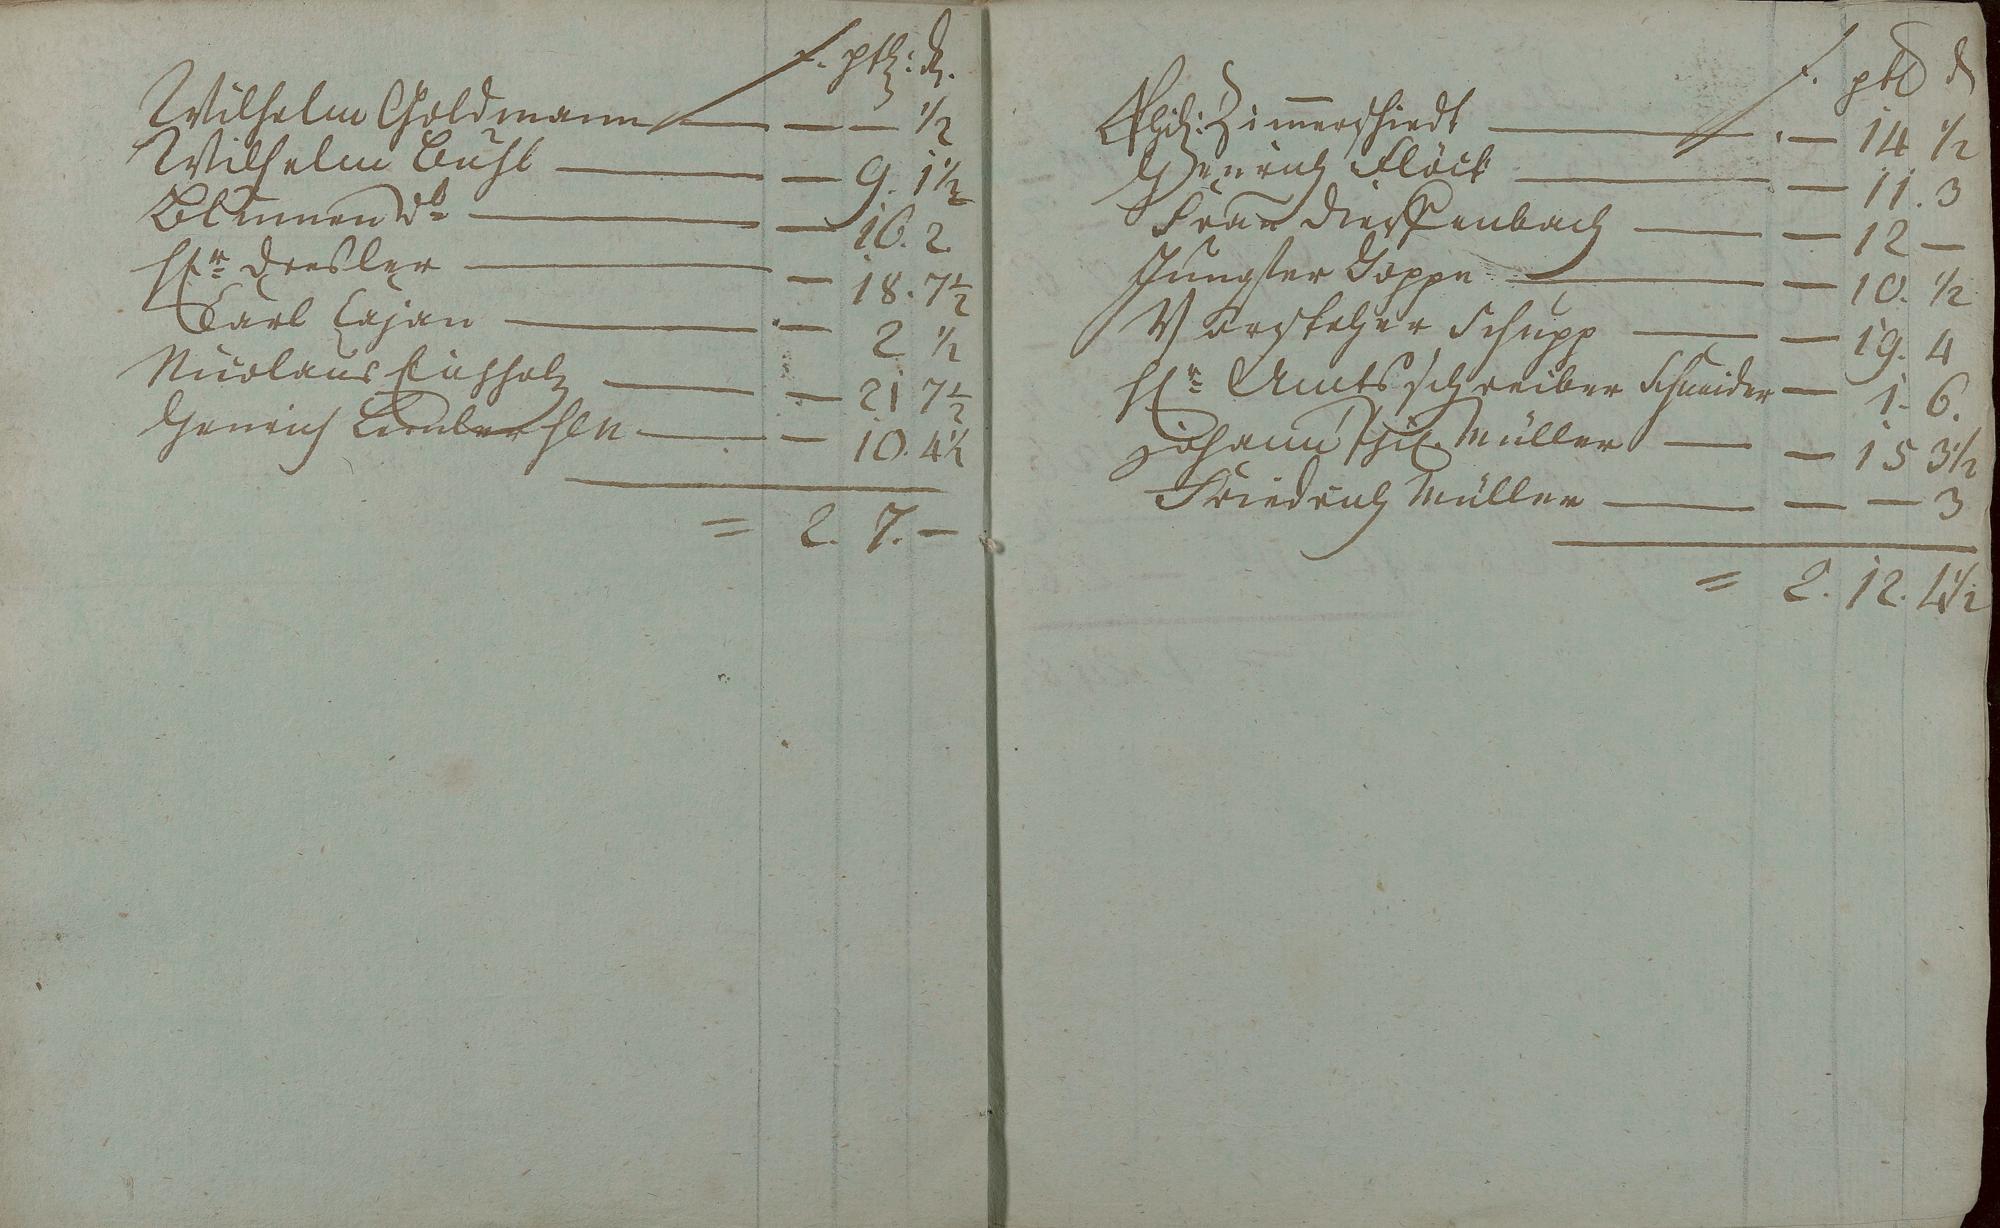 f. ptz: d.
Wilhelm Goldmann — — — ½
Wilhelm Buhl — — 9. 1½
Blumen — — 16. 2
Hr. Dresler — — 18. 7½
Carl Cajan — — 2 ½
Nicolaus Eichholz — — 21 7½
Henrich — — 10. 4½
= 2. 7. —
f. ptz d
Zimmerschiedt — — 14 ½
Henrich Flöck — — 11. 3
Frau Dieffenbach — — 12 —
Jungfer Goppe — — 10. ½
Vorsteher Schupp — — 19. 4
Hr. Amtsschreiber Schneider — 1. 6.
Johann Phil. Müller — — 15 3½
Friedrich Müller — — — 3
= 2. 12. 4½